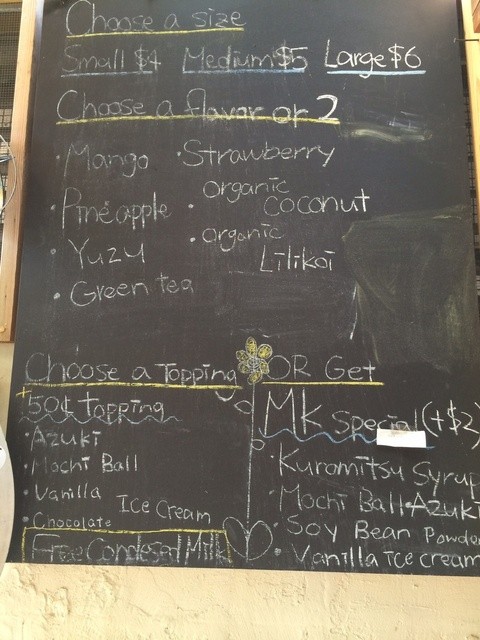 Choose a size
Small $4 Medium $5 Large $6
Choose a flavor or 2
• Mango • Strawberry
• Pineapple • organic coconut
• Yuzu • organic Lilikoi
• Green tea
Choose a Topping
+50¢ topping
• Azuki
• Mochi Ball
• Vanilla
• Chocolate Ice Cream
Free Condesed Milk
OR Get
MK Special (+$2)
• Kuromitsu Syrup
• Mochi Ball + Azuki
• Soy Bean Powder
• Vanilla ice cream